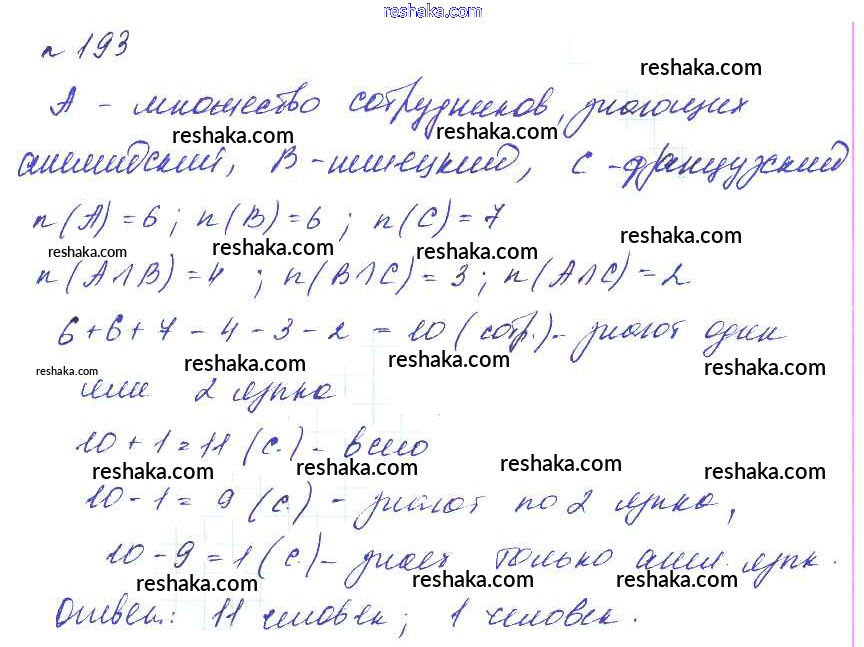 reshaka.com
n 193
reshaka.com
A - множество сотрудников, знающих
reshaka.com reshaka.com
английский, B - немецкий, C - французский
n(A) = 6; n(B) = 6; n(C) = 7
reshaka.com reshaka.com reshaka.com reshaka.com
n(A∩B) = 4; n(B∩C) = 3; n(A∩C) = 2
6 + 6 + 7 - 4 - 3 - 2 = 10 (сотр.) - знают один
reshaka.com reshaka.com reshaka.com reshaka.com
или 2 языка
10 + 1 = 11 (с.) - всего
reshaka.com reshaka.com reshaka.com reshaka.com
10 - 1 = 9 (с.) - знают по 2 языка,
10 - 9 = 1 (с.) - знает только англ. язык.
reshaka.com reshaka.com reshaka.com
Ответ: 11 человек; 1 человек.